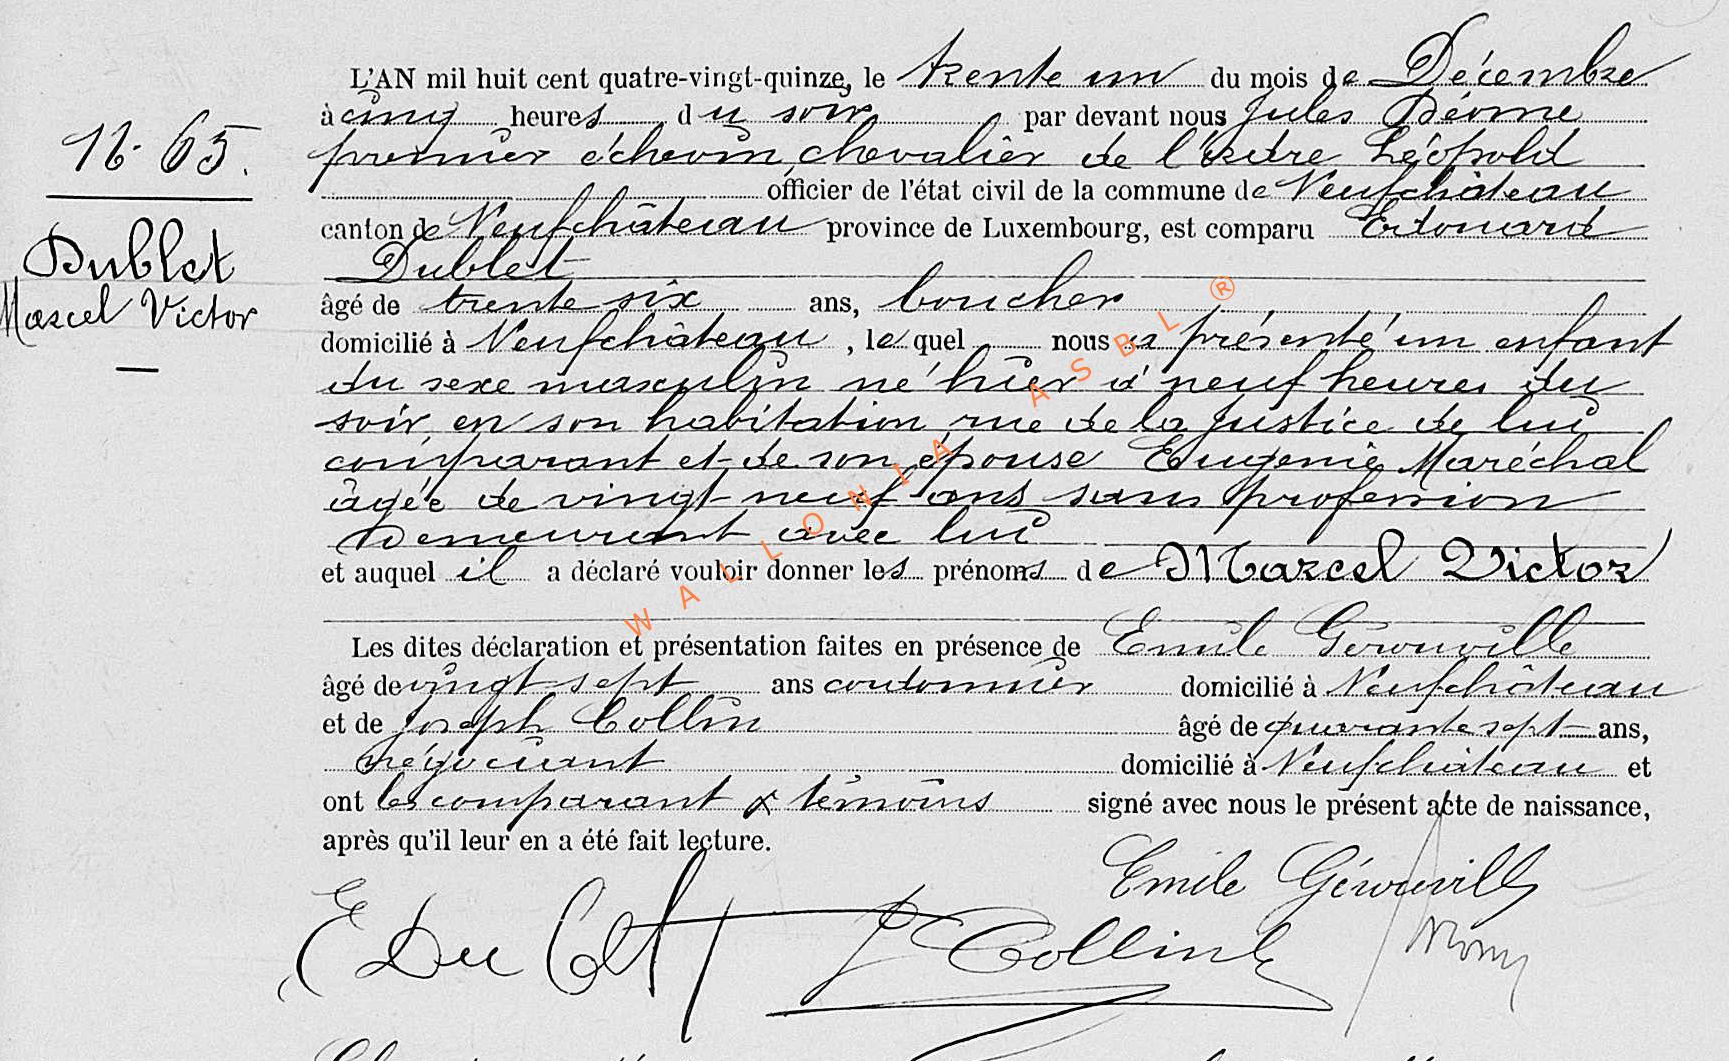 L'AN mil huit cent quatre-vingt-quinze, le trente un du mois de Décembre
à cinq heures du soir par devant nous Jules Déome
premier échevin, chevalier de l'ordre Léopold
officier de l'état civil de la commune de Neufchâteau
canton de Neufchâteau province de Luxembourg, est comparu Edouard
Dublet
âgé de trente six ans, boucher
domicilié à Neufchâteau, le quel nous a présenté un enfant
du sexe masculin né hier à neuf heures du
soir, en son habitation, rue de la Justice de lui
comparant et de son épouse Eugenie Maréchal
âgée de vingt-neuf ans sans profession
demeurant avec lui
et auquel il a déclaré vouloir donner les prénoms de Marcel Victor
Les dites déclaration et présentation faites en présence de Emile Gérouville
âgé de vingt sept ans cordonnier domicilié à Neufchâteau
et de Joseph Collin âgé de quarante sept ans,
négociant domicilié à Neufchâteau et
ont les comparant & témoins signé avec nous le présent acte de naissance,
après qu'il leur en a été fait lecture.
Emile Gérouville
E Dublet
J Collin
65.
Dublet
Marcel Victor
WALLONIA ASBL ®